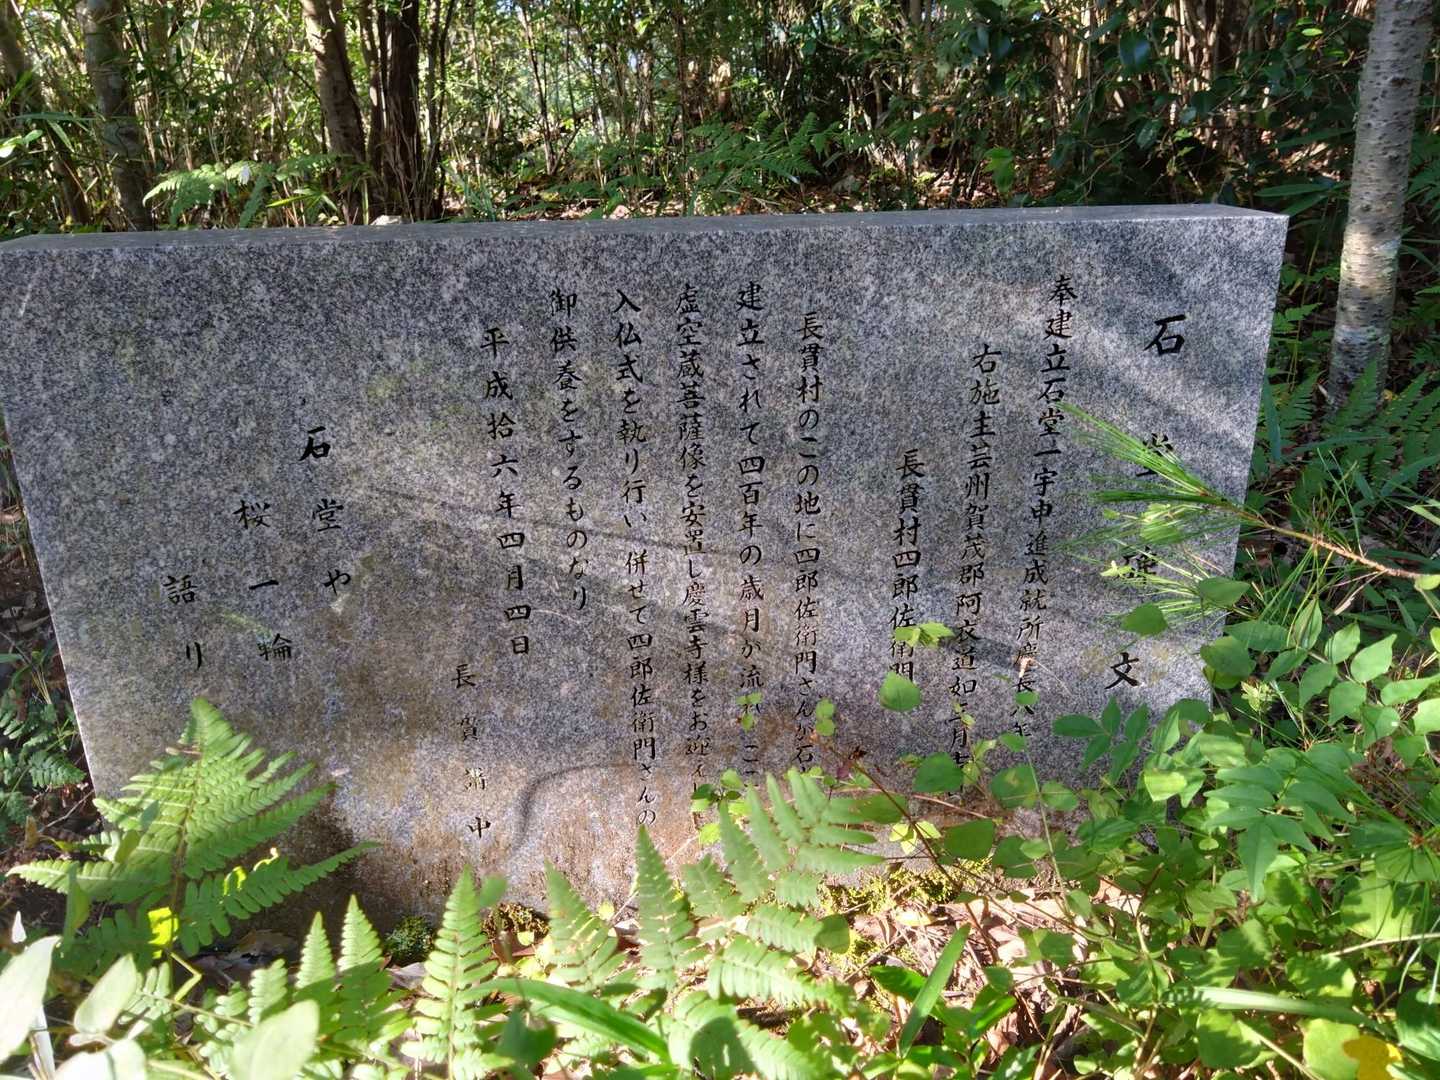 石堂碑文
奉建立石堂一宇申進成就所慶長八年
右施主芸州賀茂郡阿衣道如二月吉
長貫村四郎佐衛門
長貫村のこの地に四郎佐衛門さんが石
建立されて四百年の歳月が流れ ここ
虚空蔵菩薩像を安置し慶雲寺様をお迎えし
入仏式を執り行い 併せて四郎佐衛門さんの
御供養をするものなり
平成拾六年四月四日
長貫講中
石堂や
桜一輪
語り